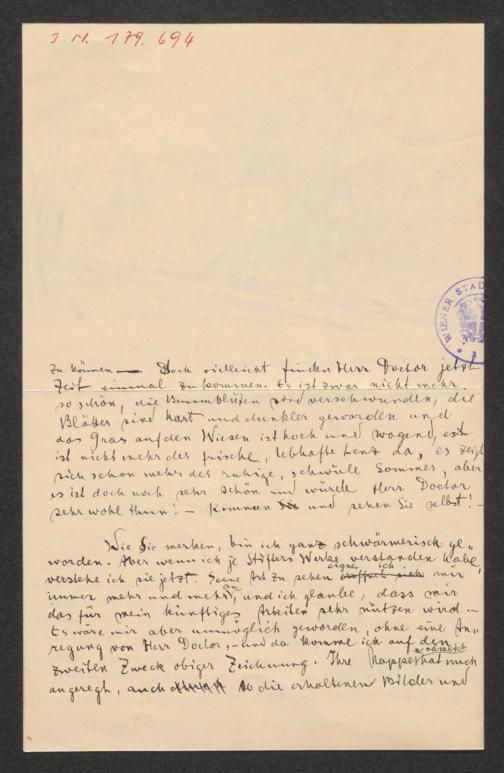 J. N. 179.694
WIENER STAD
zu können — Doch vielleicht finden Herr Doctor jetzt
Zeit einmal zu kommen. Es ist zwar nicht mehr
so schön, die Baumblüten sind verschwunden, die
Blätter sind hart und dunkler geworden und
das Gras auf den Wiesen ist hoch und wogend, es
ist nicht mehr der frische, lebhafte Lenz da, es zeigt
sich schon mehr der ruhige, schwüle Sommer, aber
es ist doch noch sehr schön und würde Herr Doctor
sehr wohl thun! – Kommen Sie und sehen Sie selbst! –
Wie Sie merken, bin ich ganz schwärmerisch ge-
worden. Aber wenn ich je Stifters Werke verstanden habe,
verstehe ich sie jetzt. Seine Art zu sehen eigne ich mir
immer mehr und mehr an, und ich glaube, dass mir
das für mein künftiges Arbeiten sehr nützen wird. –
Es wäre mir aber unmöglich geworden, ohne eine An-
regung von Herr Doctor, – und da komme ich auf den
zweiten Zweck obiger Zeichnung. Ihre Mappe hat mich nämlich
angeregt, auch so die erhaltenen Bilder und